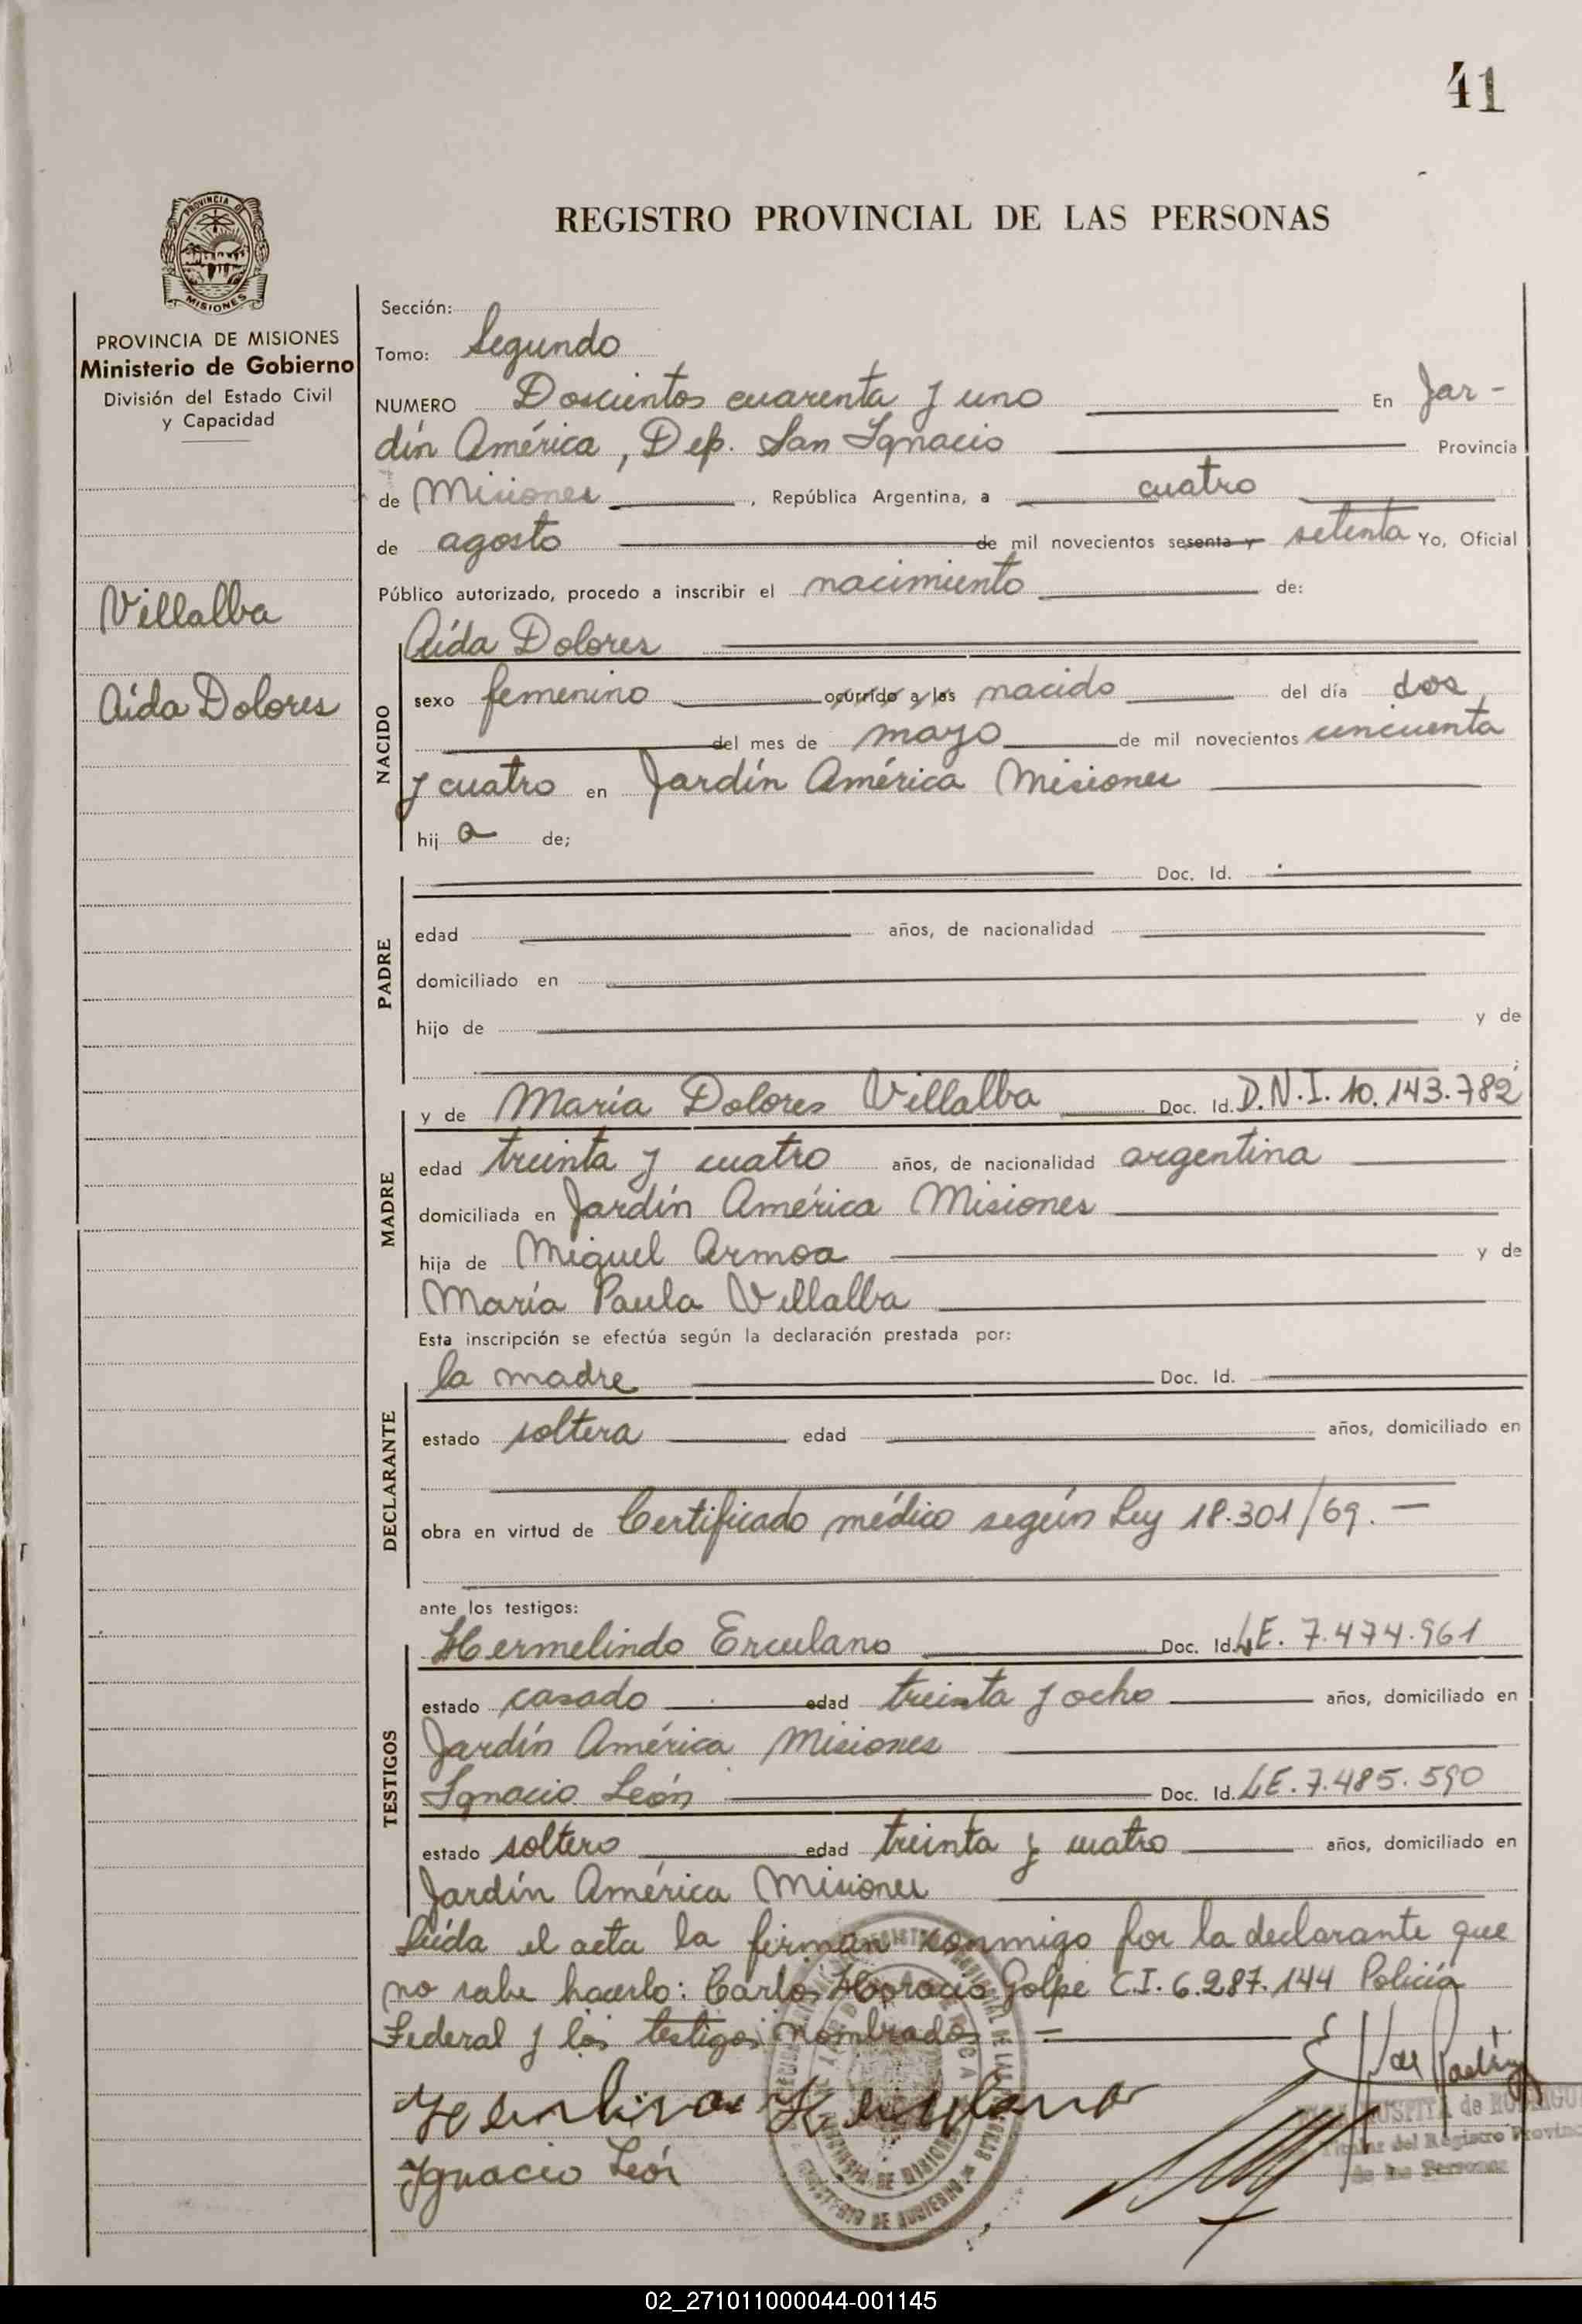 41
REGISTRO PROVINCIAL DE LAS PERSONAS
PROVINCIA DE MISIONES
PROVINCIA DE MISIONES
Ministerio de Gobierno
División del Estado Civil
y Capacidad
Villalba
Aída Dolores
Sección:
Tomo: Segundo
NUMERO Doscientos cuarenta y uno En Jar-
dín América, Dep. San Ignacio Provincia
de Misiones, República Argentina, a cuatro
de agosto de mil novecientos sesenta y setenta Yo, Oficial
Público autorizado, procedo a inscribir el nacimiento de:
NACIDO
Aída Dolores
sexo femenino ocurrido a las nacido del día dos
del mes de mayo de mil novecientos cincuenta
y cuatro en Jardín América Misiones
hij a de;
PADRE
Doc. Id.
edad años, de nacionalidad
domiciliado en
hijo de y de
MADRE
y de María Dolores Villalba Doc. Id. D.N.I. 10.143.782
edad treinta y cuatro años, de nacionalidad argentina
domiciliada en Jardín América Misiones
hija de Miguel Armoa y de
María Paula Villalba
Esta inscripción se efectúa según la declaración prestada por:
DECLARANTE
la madre Doc. Id.
estado soltera edad años, domiciliado en
obra en virtud de Certificado médico según Ley 18.301/69.—
ante los testigos:
TESTIGOS
Hermelindo Erculano Doc. Id. LE. 7.474.961
estado casado edad treinta y ocho años, domiciliado en
Jardín América Misiones
Ignacio León Doc. Id. LE. 7.485.590
estado soltero edad treinta y cuatro años, domiciliado en
Jardín América Misiones
Leída el acta la firman conmigo por la declarante que
no sabe hacerlo: Carlos Horacio Golpe C.I. 6.287.144 Policía
Federal y los testigos nombrados =
Ignacio León
Titular del Registro Provinc
de las Personas
02_271011000044-001145